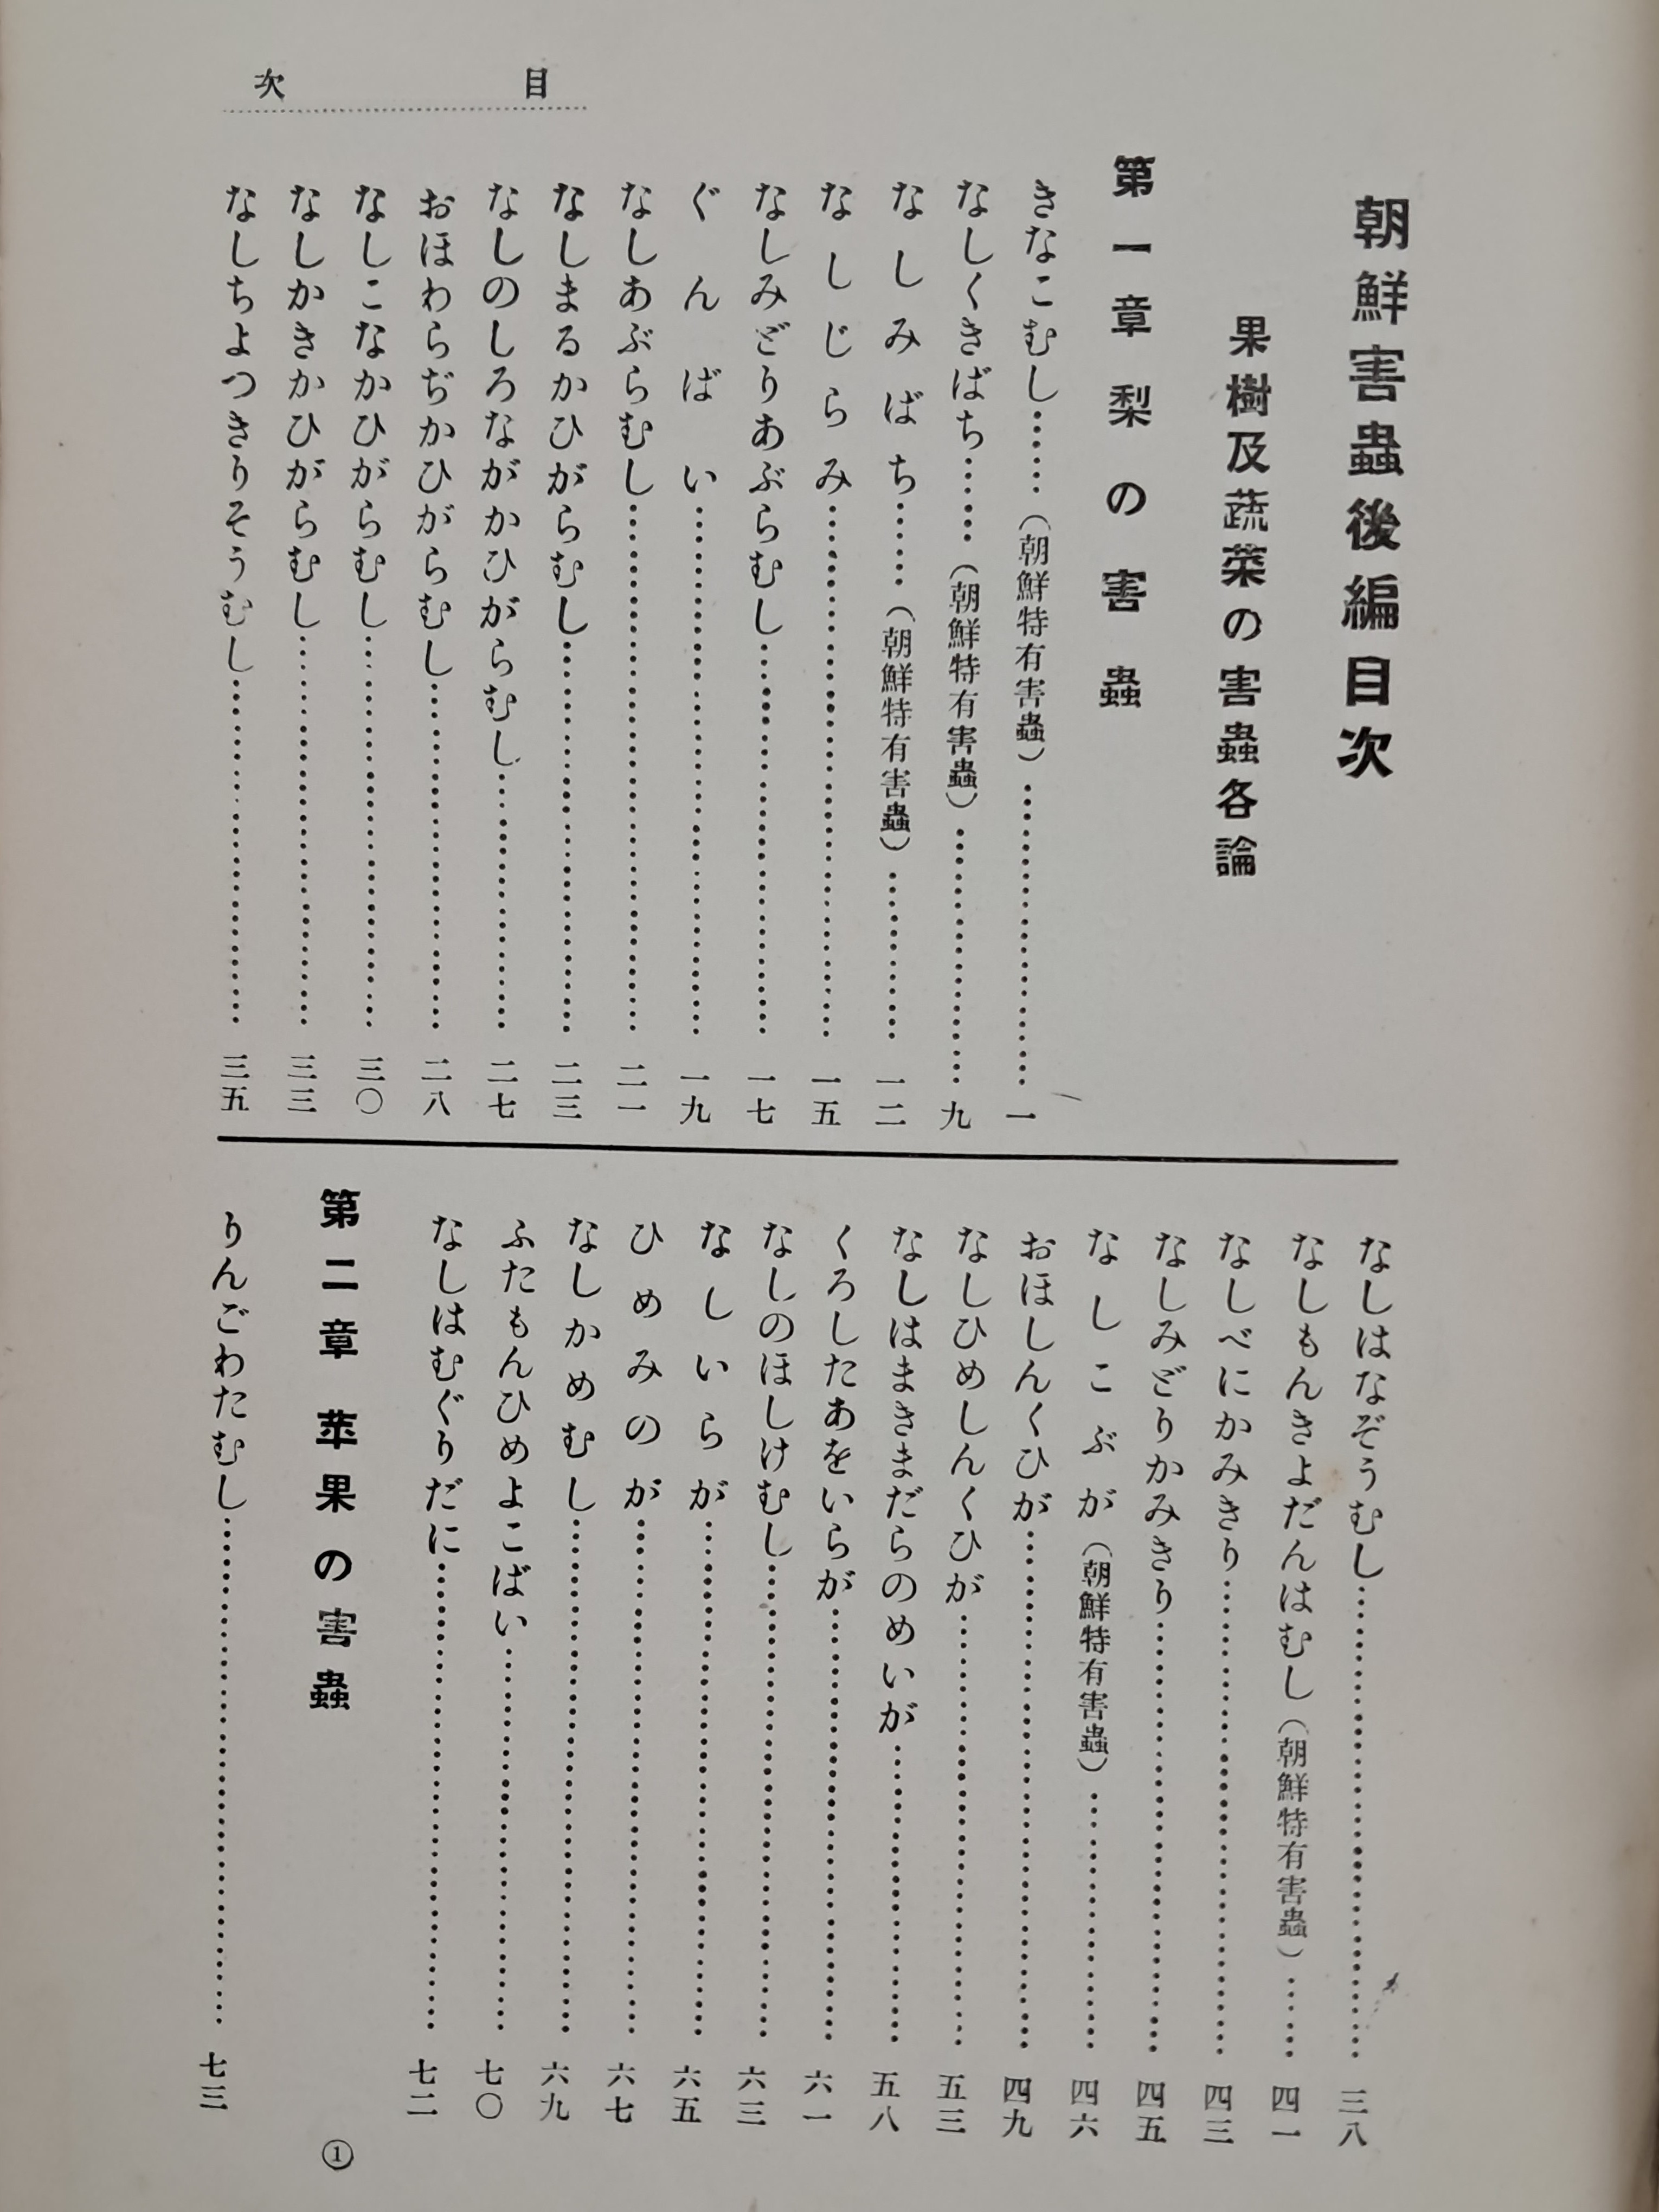 目次
朝鮮害蟲後編目次
果樹及蔬菜の害蟲各論
第一章 梨の害蟲
きなこむし……(朝鮮特有害蟲)……一
なしくきばち……(朝鮮特有害蟲)……九
なしみばち……(朝鮮特有害蟲)……一二
なしじらみ……一五
なしみどりあぶらむし……一七
ぐんばい……一九
なしあぶらむし……二一
なしまるかひがらむし……二三
なしのしろながかひがらむし……二七
おほわらぢかひがらむし……二八
なしこなかひがらむし……三〇
なしかきかひがらむし……三三
なしちよつきりそうむし……三五
なしはなぞうむし……三八
なしもんきよだんはむし(朝鮮特有害蟲)……四一
なしべにかみきり……四三
なしみどりかみきり……四五
なしこぶが(朝鮮特有害蟲)……四六
おほしんくひが……四九
なしひめしんくひが……五三
なしはまきまだらのめいが……五八
くろしたあをいらが……六一
なしのほしけむし……六三
なしいらが……六五
ひめみのが……六七
なしかめむし……六九
ふたもんひめよこばい……七〇
なしはむぐりだに……七二
第二章 苹果の害蟲
りんごわたむし……七三
①